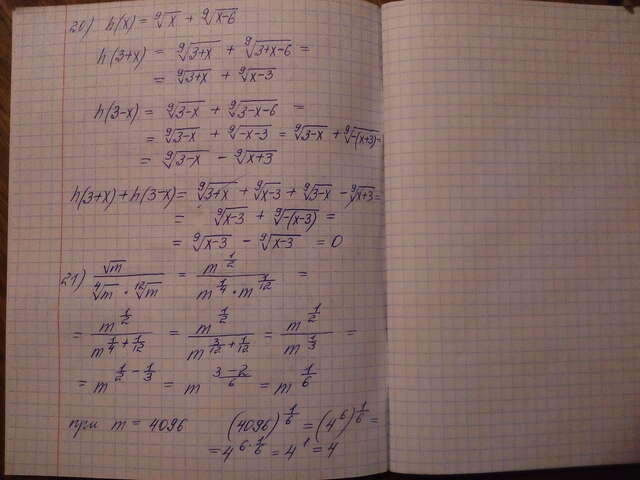 20) h(x) = ⁹√x + ⁹√(x-6)
h(3+x) = ⁹√(3+x) + ⁹√(3+x-6) =
= ⁹√(3+x) + ⁹√(x-3)
h(3-x) = ⁹√(3-x) + ⁹√(3-x-6) =
= ⁹√(3-x) + ⁹√(-x-3) = ⁹√(3-x) + ⁹√(-(x+3)) =
= ⁹√(3-x) - ⁹√(x+3)
h(3+x) + h(3-x) = ⁹√(3+x) + ⁹√(x-3) + ⁹√(3-x) - ⁹√(x+3) =
= ⁹√(x-3) + ⁹√(-(x-3)) =
= ⁹√(x-3) - ⁹√(x-3) = 0
21) √m / (⁴√m · ¹²√m) = m^(1/2) / (m^(1/4) · m^(1/12)) =
= m^(1/2) / m^(1/4 + 1/12) = m^(1/2) / m^(3/12 + 1/12) = m^(1/2) / m^(1/3) =
= m^(1/2 - 1/3) = m^((3-2)/6) = m^(1/6)
при m = 4096 (4096)^(1/6) = (4^6)^(1/6) =
= 4^(6·1/6) = 4^1 = 4